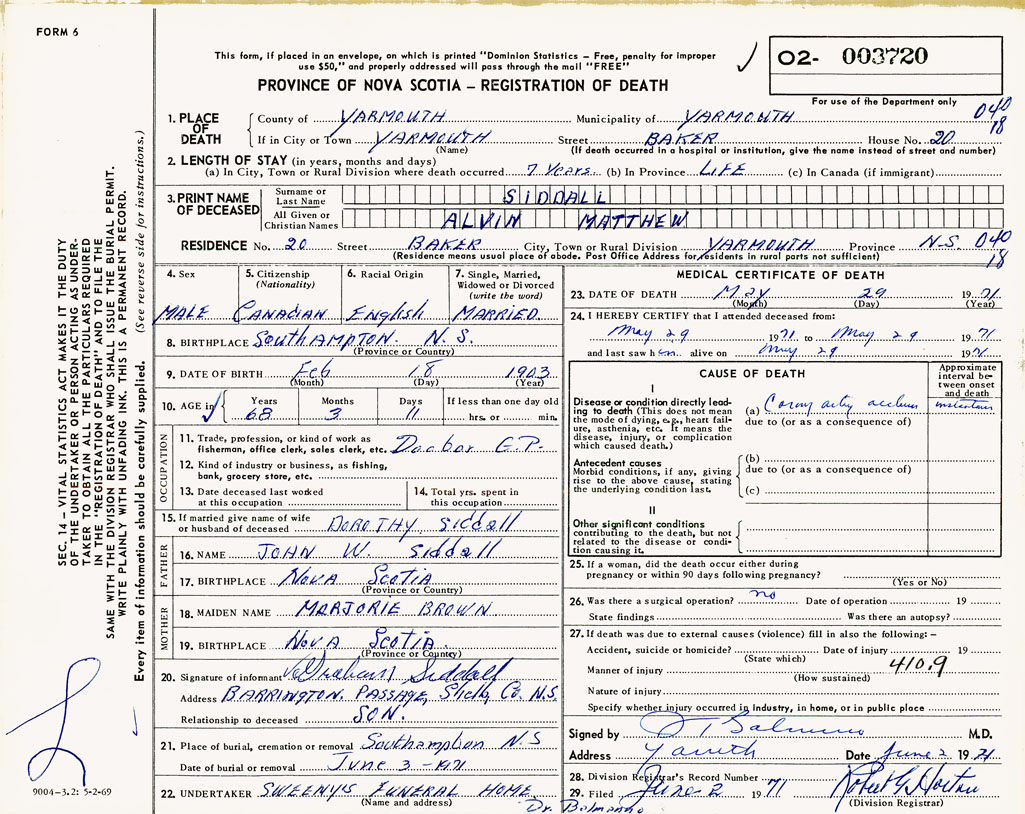 FORM 6
This form, if placed in an envelope, on which is printed "Dominion Statistics – Free, penalty for improper
use $50," and properly addressed will pass through the mail "FREE"
✓
02- 003720
PROVINCE OF NOVA SCOTIA – REGISTRATION OF DEATH
For use of the Department only
040
18
1. PLACE OF DEATH
County of YARMOUTH Municipality of YARMOUTH
If in City or Town YARMOUTH Street BAKER House No. 20
(Name) (If death occurred in a hospital or institution, give the name instead of street and number)
2. LENGTH OF STAY (in years, months and days)
(a) In City, Town or Rural Division where death occurred 7 Years (b) In Province LIFE (c) In Canada (if immigrant)
3. PRINT NAME OF DECEASED
Surname or Last Name SIDDALL
All Given or Christian Names ALVIN MATTHEW
RESIDENCE No. 20 Street BAKER City, Town or Rural Division YARMOUTH Province N.S. 040
(Residence means usual place of abode. Post Office Address for residents in rural parts not sufficient) 18
4. Sex
MALE
5. Citizenship
(Nationality)
Canadian
6. Racial Origin
English
7. Single, Married,
Widowed or Divorced
(write the word)
MARRIED
8. BIRTHPLACE Southampton. N.S.
(Province or Country)
9. DATE OF BIRTH Feb 18 1903
(Month) (Day) (Year)
10. AGE in ✓ Years 68 Months 3 Days 11 If less than one day old
hrs. or min.
OCCUPATION
11. Trade, profession, or kind of work as
fisherman, office clerk, sales clerk, etc. Doctor G.P.
12. Kind of industry or business, as fishing,
bank, grocery store, etc.
13. Date deceased last worked
at this occupation
14. Total yrs. spent in
this occupation
15. If married give name of wife
or husband of deceased DOROTHY Siddall
FATHER
16. NAME JOHN W. Siddall
17. BIRTHPLACE Nova Scotia
(Province or Country)
MOTHER
18. MAIDEN NAME MARJORIE BROWN
19. BIRTHPLACE Nova Scotia
(Province or Country)
20. Signature of informant Graham Siddall
Address BARRINGTON PASSAGE, Shelb. Co. N.S.
Relationship to deceased SON.
21. Place of burial, cremation or removal Southampton N.S
Date of burial or removal June 3 - 1971
22. UNDERTAKER SWEENY'S FUNERAL HOME
(Name and address)
Dr. Balmanno
MEDICAL CERTIFICATE OF DEATH
23. DATE OF DEATH May 29 1971
(Month) (Day) (Year)
24. I HEREBY CERTIFY that I attended deceased from:
May 29 1971 to May 29 1971
and last saw him alive on May 29 1971
CAUSE OF DEATH
Approximate
interval be-
tween onset
and death
I
Disease or condition directly lead-
ing to death (This does not mean
the mode of dying, e.g., heart fail-
ure, asthenia, etc. It means the
disease, injury, or complication
which caused death.)
(a)
due to (or as a consequence of)
Antecedent causes
Morbid conditions, if any, giving
rise to the above cause, stating
the underlying condition last.
(b)
due to (or as a consequence of)
(c)
II
Other significant conditions
contributing to the death, but not
related to the disease or condi-
tion causing it.
25. If a woman, did the death occur either during
pregnancy or within 90 days following pregnancy?
(Yes or No)
26. Was there a surgical operation? no Date of operation 19
State findings Was there an autopsy?
27. If death was due to external causes (violence) fill in also the following: –
Accident, suicide or homicide? Date of injury 19
(State which)
Manner of injury 410.9
(How sustained)
Nature of injury
Specify whether injury occurred in industry, in home, or in public place
Signed by Balmanno M.D.
Address Date June 2 1971
28. Division Registrar's Record Number
29. Filed June 2 1971 Robert G. Horton
(Division Registrar)
SEC. 14 – VITAL STATISTICS ACT MAKES IT THE DUTY
OF THE UNDERTAKER OR PERSON ACTING AS UNDER-
TAKER TO OBTAIN ALL THE PARTICULARS REQUIRED
IN THE "REGISTRATION OF DEATH" AND TO FILE THE
SAME WITH THE DIVISION REGISTRAR WHO SHALL ISSUE THE BURIAL PERMIT.
WRITE PLAINLY WITH UNFADING INK. THIS IS A PERMANENT RECORD.
Every item of information should be carefully supplied. (See reverse side for instructions.)
9004-3.2: 5-2-69